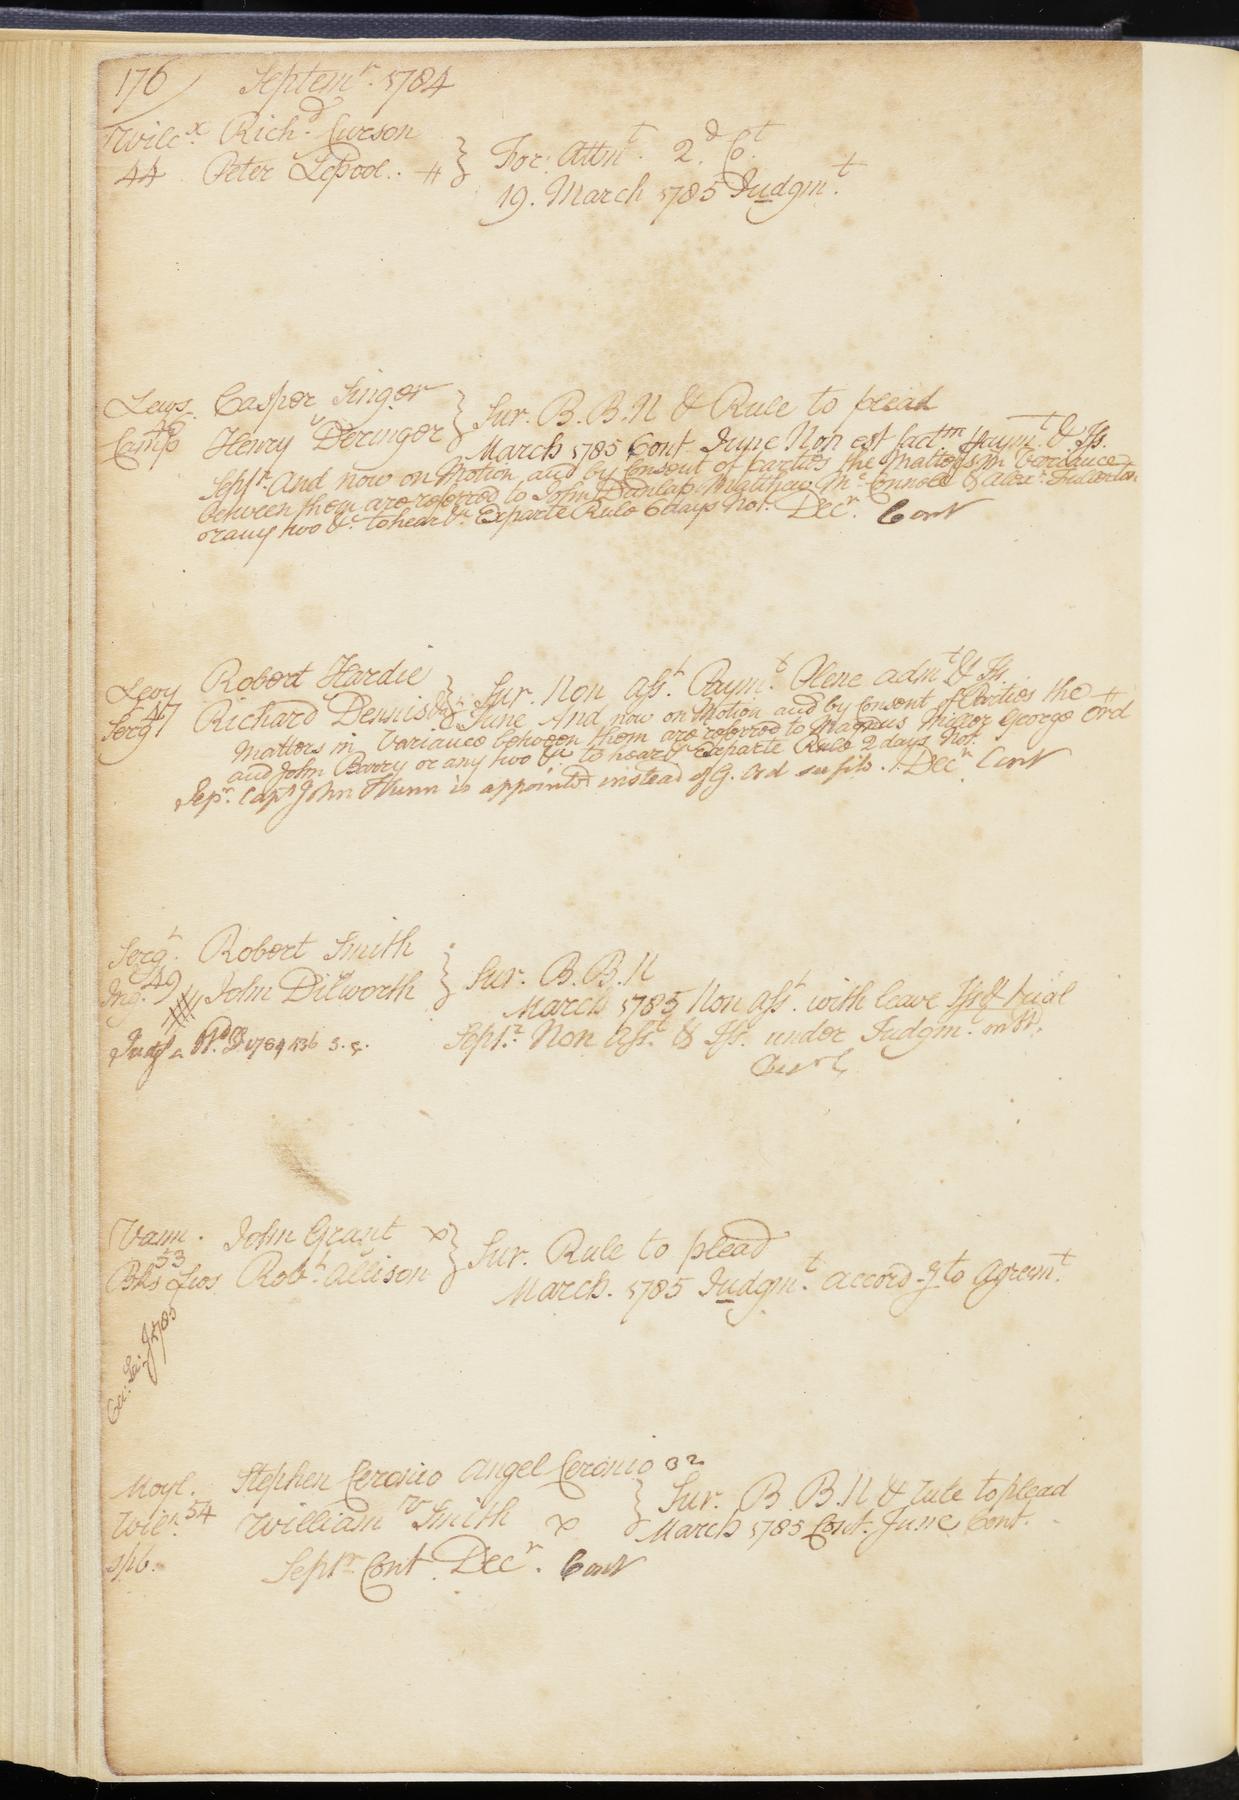 176 Septemr. 1784
Wilcx. Richd. Curson
44 Peter LePool. } For: Attmt. 2d. Ct.
19. March 1785 Judgmt.
Lews. Casper Singer } Sur. B. B. N & Rule to plead
Camp Henry v Deringer March 1785 Cont June Non est factm Paymt. & Iss.
Septr. And now on Motion and by Consent of parties the Matters in Variance
between them are referred to John Dunlap Matthew McConnell & Alexr. Fullerton
or any two &c to hear &c Exparte Rule 6 days Not. Decr. Cont
Levy Robert Hardie } Sur. Non Asst. Paymt. Plene admt & Iss.
47 Sergt Richard Dennis &c June And now on Motion and by Consent of Parties the
Matters in Variance between them are referred to Magnus Miller George Ord
and John Barry or any two &c to hear &c Exparte Rule 2 days Not.
Sepr. Capt John Hunn is appointed instead of G. Ord Decr Cont
Sergt. Robert Smith } Sur. B. B. N
Ing. 49 John v Dilworth March 1785 Non Asst. with leave Iss & trial
Septr. Non Asst. & Iss. under Judgmt. on
Vann. John Grant } Sur. Rule to plead
53 Robt. v Allison March. 1785 Judgmt. accordg to Agremt.
Moyl. Stephen Ceronio Angel Ceronio
Wiln. 54 William v Smith } Sur. B. B. N & Rule to plead
March 1785 Cont. June Cont.
Septr Cont. Decr. Cont